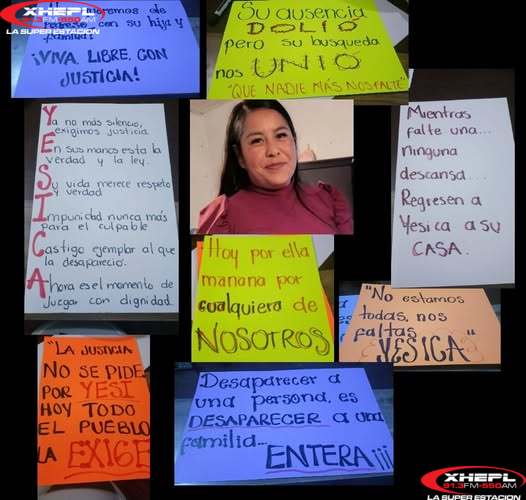 XHEPL
91.3FM-550AM
LA SUPER ESTACION
queremos de
regreso con su hija y
familia!
¡VIVA, LIBRE, CON
JUSTICIA!
Su ausencia
DOLIO
pero su busqueda
nos UNIO
"QUE NADIE MÁS NOS FALTE"
Ya no más silencio,
exigimos justicia.
En sus manos esta la
verdad y la ley.
Su vida merece respeto
y verdad
Impunidad nunca más
para el culpable
Castigo ejemplar al que
la desapareció.
Ahora es el momento de
juzgar con dignidad.
Mientras
falte una...
ninguna
descansa...
Regresen a
Yesica a su
CASA.
Hoy por ella
mañana por
cualquiera de
NOSOTROS
"No estamos
todas, nos
faltas
YESICA"
"LA JUSTICIA
NO SE PIDE
POR YESI
HOY TODO
EL PUEBLO
LA EXIGE
Desaparecer a
una persona, es
DESAPARECER a una
familia...
ENTERA¡¡¡
XHEPL
91.3FM-550AM
LA SUPER ESTACION